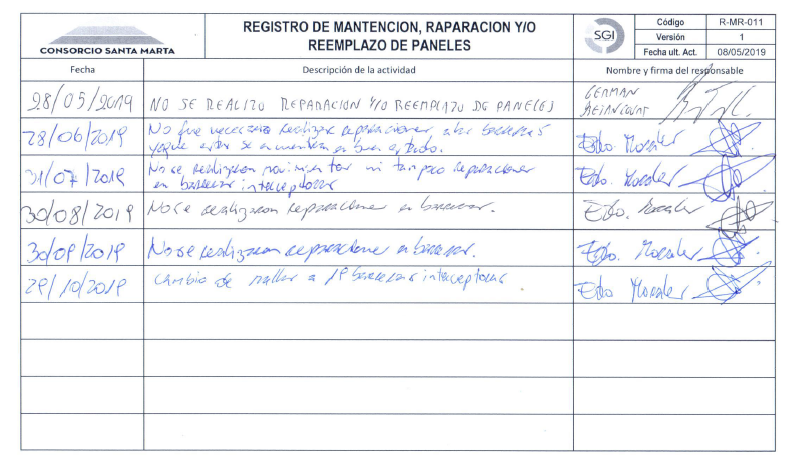 CONSORCIO SANTA MARTA
REGISTRO DE MANTENCION, RAPARACION Y/O
REEMPLAZO DE PANELES
SGI
Código R-MR-011
Versión 1
Fecha ult. Act. 08/05/2019
Fecha Descripción de la actividad Nombre y firma del responsable
28/05/2019 NO SE REALIZO REPARACION Y/O REEMPLAZO DE PANELES GERMAN
BETANCOURT
28/06/2019 No fue necesario realizar reparaciones a las barreras
yaque estas se encuentran en buen estado. Edo. Morales
31/07/2019 No se realizaron movimientos ni tampoco reparaciones
en barreras interceptoras Edo. Morales
30/08/2019 No se realizaron reparaciones en barreras. Edo. Morales
30/09/2019 No se realizaron reparaciones en barreras. Edo. Morales
29/10/2019 Cambio de mallas a 19 barreras interceptoras. Edo Morales